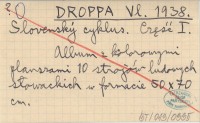 DROPPA Vl. 1938.
Slovenský cyklus. Część I.
Album z kolorowymi
planszami 10 strojów ludowych
słowackich w formacie 50 x 70
cm.
BT/013/0555